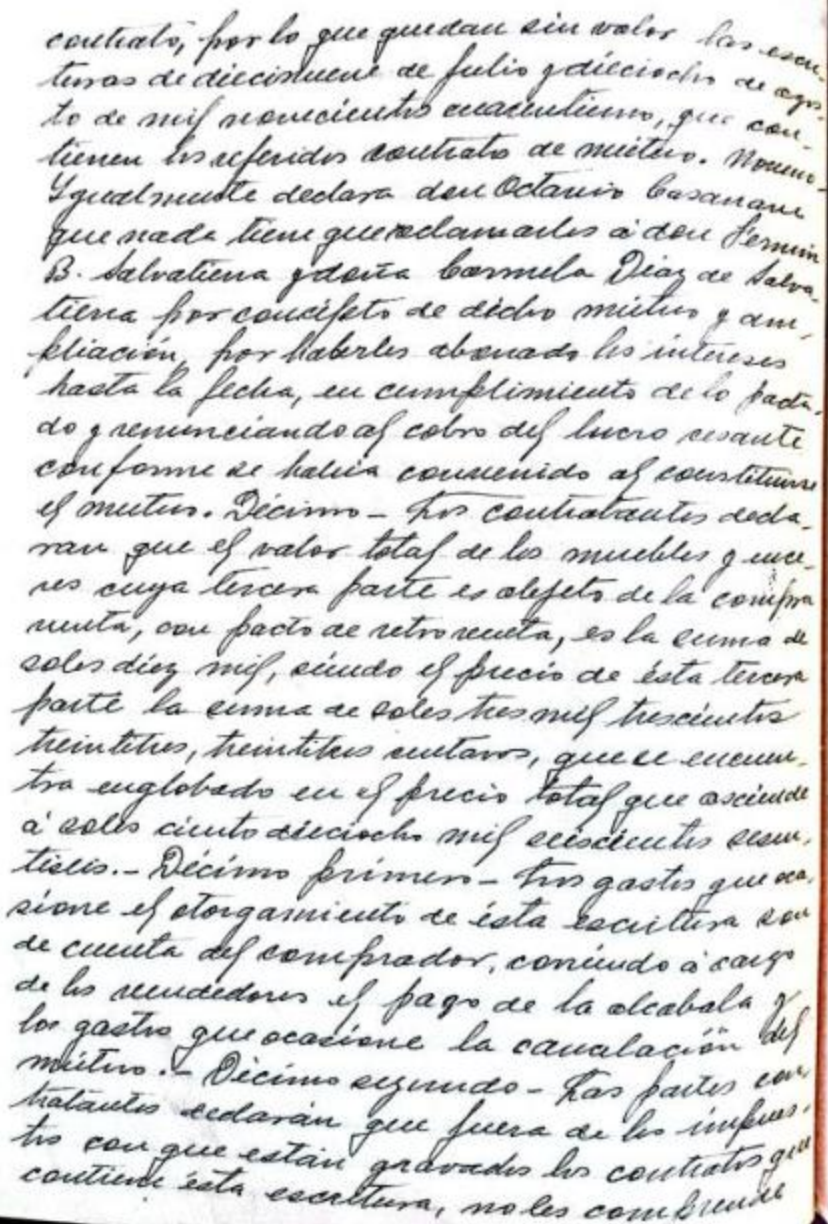 contrato, por lo que quedan sin valor las escri-
turas de diecinueve de julio y dieciocho de agos-
to de mil novecientos cuarentiuno, que con-
tienen los referidos contrato de mútuo. Noveno-
Ygualmente declara don Octavio Casanave
que nada tiene que reclamarles á don Fermin
B. Salvatierra y doña Carmela Diaz de Salva-
tierra por concépto de dicho mútuo y am-
pliación, por haberles abonado los intereses
hasta la fecha, en cumplimiento de lo pacta-
do y renunciando al cobro del lucro cesante
conforme se habia convenido al constituirse
el mutuo. Décimo - Los contratantes decla-
ran que el valor total de los muebles y ense-
res cuya tercera parte es objeto de la compra
venta, con pacto de retroventa, es la suma de
soles diez mil, siendo el precio de ésta tercera
parte la suma de soles tres mil trescientos
treintitres, treintitres centavos, que se encuen-
tra englobado en el precio total que asciende
á soles ciento dieciocho mil seiscientos sesen-
tiseis. - Décimo primero - Los gastos que oca-
sione el otorgamiento de ésta escritura son
de cuenta del comprador, corriendo á cargo
de los vendedores el pago de la alcabala y
los gastos que ocasione la cancelación del
mútuo. - Décimo segundo - Las partes con-
tratantes declarán que fuera de los impues-
tos con que están gravados los contratos que
contiene ésta escritura, no les comprende